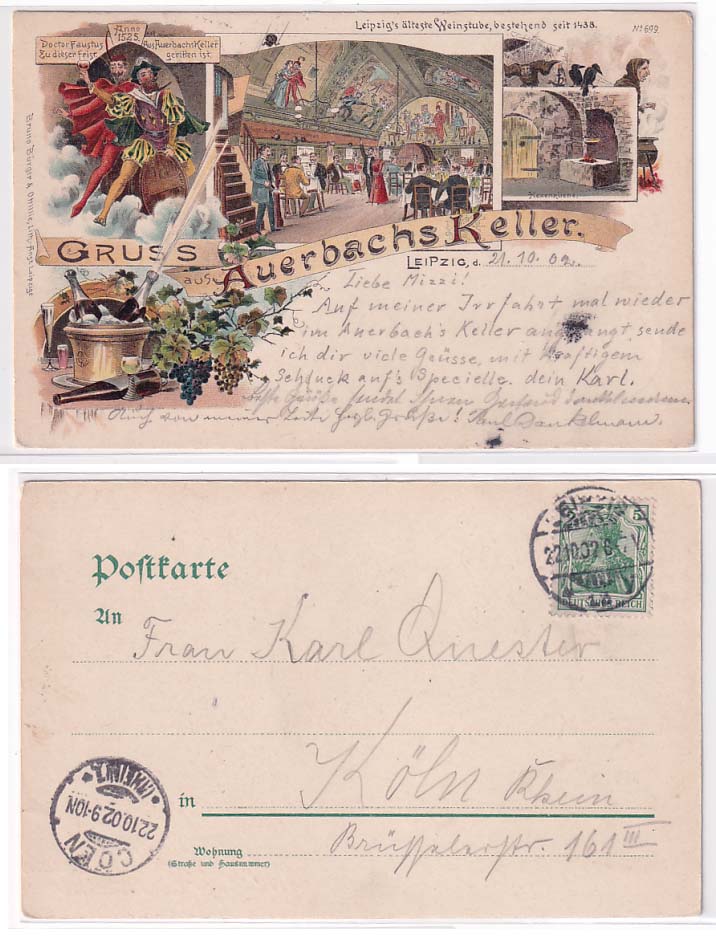 Leipzig's älteste Weinstube, bestehend seit 1438.
No 699
Anno
1525.
Doctor Faustus
Zu dieser Frist
Aus Auerbachs Keller
geritten ist
Hexenküche
Bruno Bürger & Ottillie, Lith. Anst. Leipzig
GRUSS
aus Auerbachs Keller.
LEIPZIG, d. 21. 10. 02.
Liebe Mizzi!
Auf meiner Irrfahrt mal wieder
im Auerbach's Keller, sende
ich dir viele Grüsse, mit kräftigem
auf's Specielle. dein Karl.
Beste Grüße sendet Ihnen
Auch von meiner Seite herzl. Grüße! Paul Dankelmann.
Postkarte
22.10.02 6-
5
DEUTSCHES REICH
An
Frau Karl Quester
in Köln Rhein
COELN
22.10.02 9-10N
Wohnung
(Straße und Hausnummer)
Brüsselerstr. 161 III